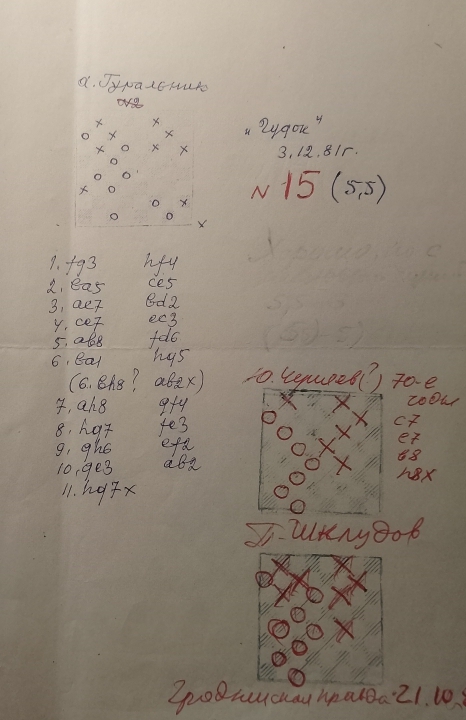 А. Гуральник
№2
"Гудок"
3.12.81г.
N 15 (5,5)
1. fg3 hf4
2. ba5 ce5
3. ae7 bd2
4. ce7 ec3
5. ab8 fd6
6. ba1 hg5
(6. bh8? ab2x)
7. ah8 gf4
8. hg7 fe3
9. gh6 ef2
10. ge3 ab2
11. hg7x
Ю. Черняев(?) 70-е
годы
c7
e7
b8
h8x
П. Шклудов
Гродненская правда 21.10.